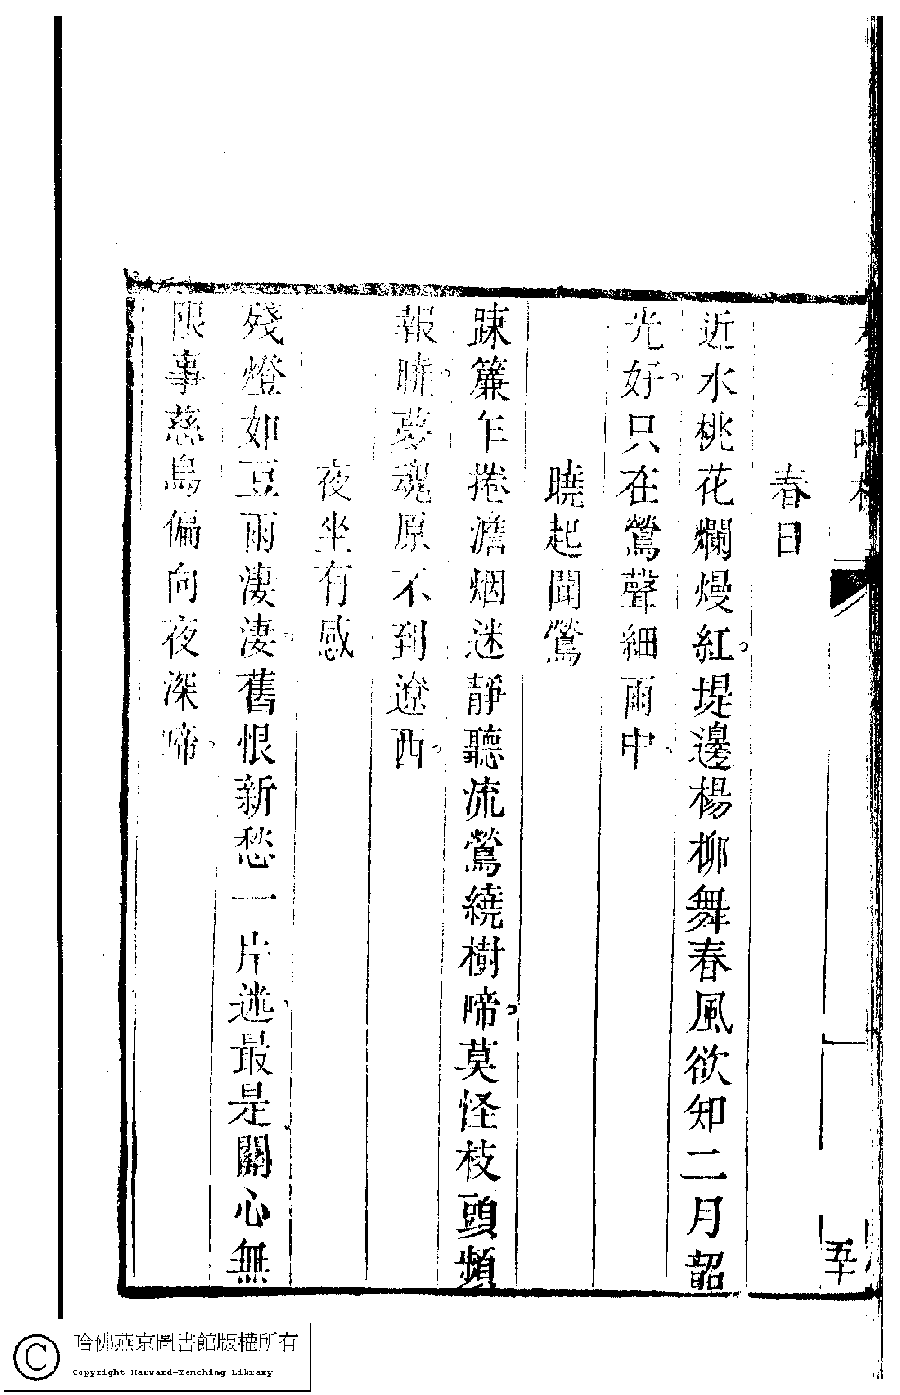 春日
近水桃花爛熳紅堤邊楊柳舞春風欲知二月韶
光好只在鶯聲細雨中
曉起聞鶯
踈簾乍捲澹烟迷靜聽流鶯繞樹啼莫怪枝頭頻
報曉夢魂原不到遼西
夜坐有感
殘燈如豆雨淒淒舊恨新愁一片迷最是關心無
限事慈烏偏向夜深啼
五十
哈佛燕京圖書館版權所有
Copyright Harvard-Yenching Library